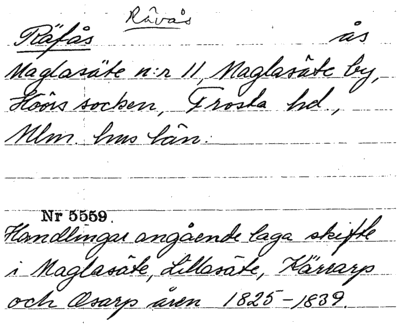 Råvås
Räfås ås
Maglasäte n:r 11, Maglasäte by,
Höörs socken, Frosta hd.,
Mlm. hus län.
Nr 5559.
Handlingar angående laga skifte
i Maglasäte, Lillasäte, Kärrarp
och Osarp åren 1825-1839.